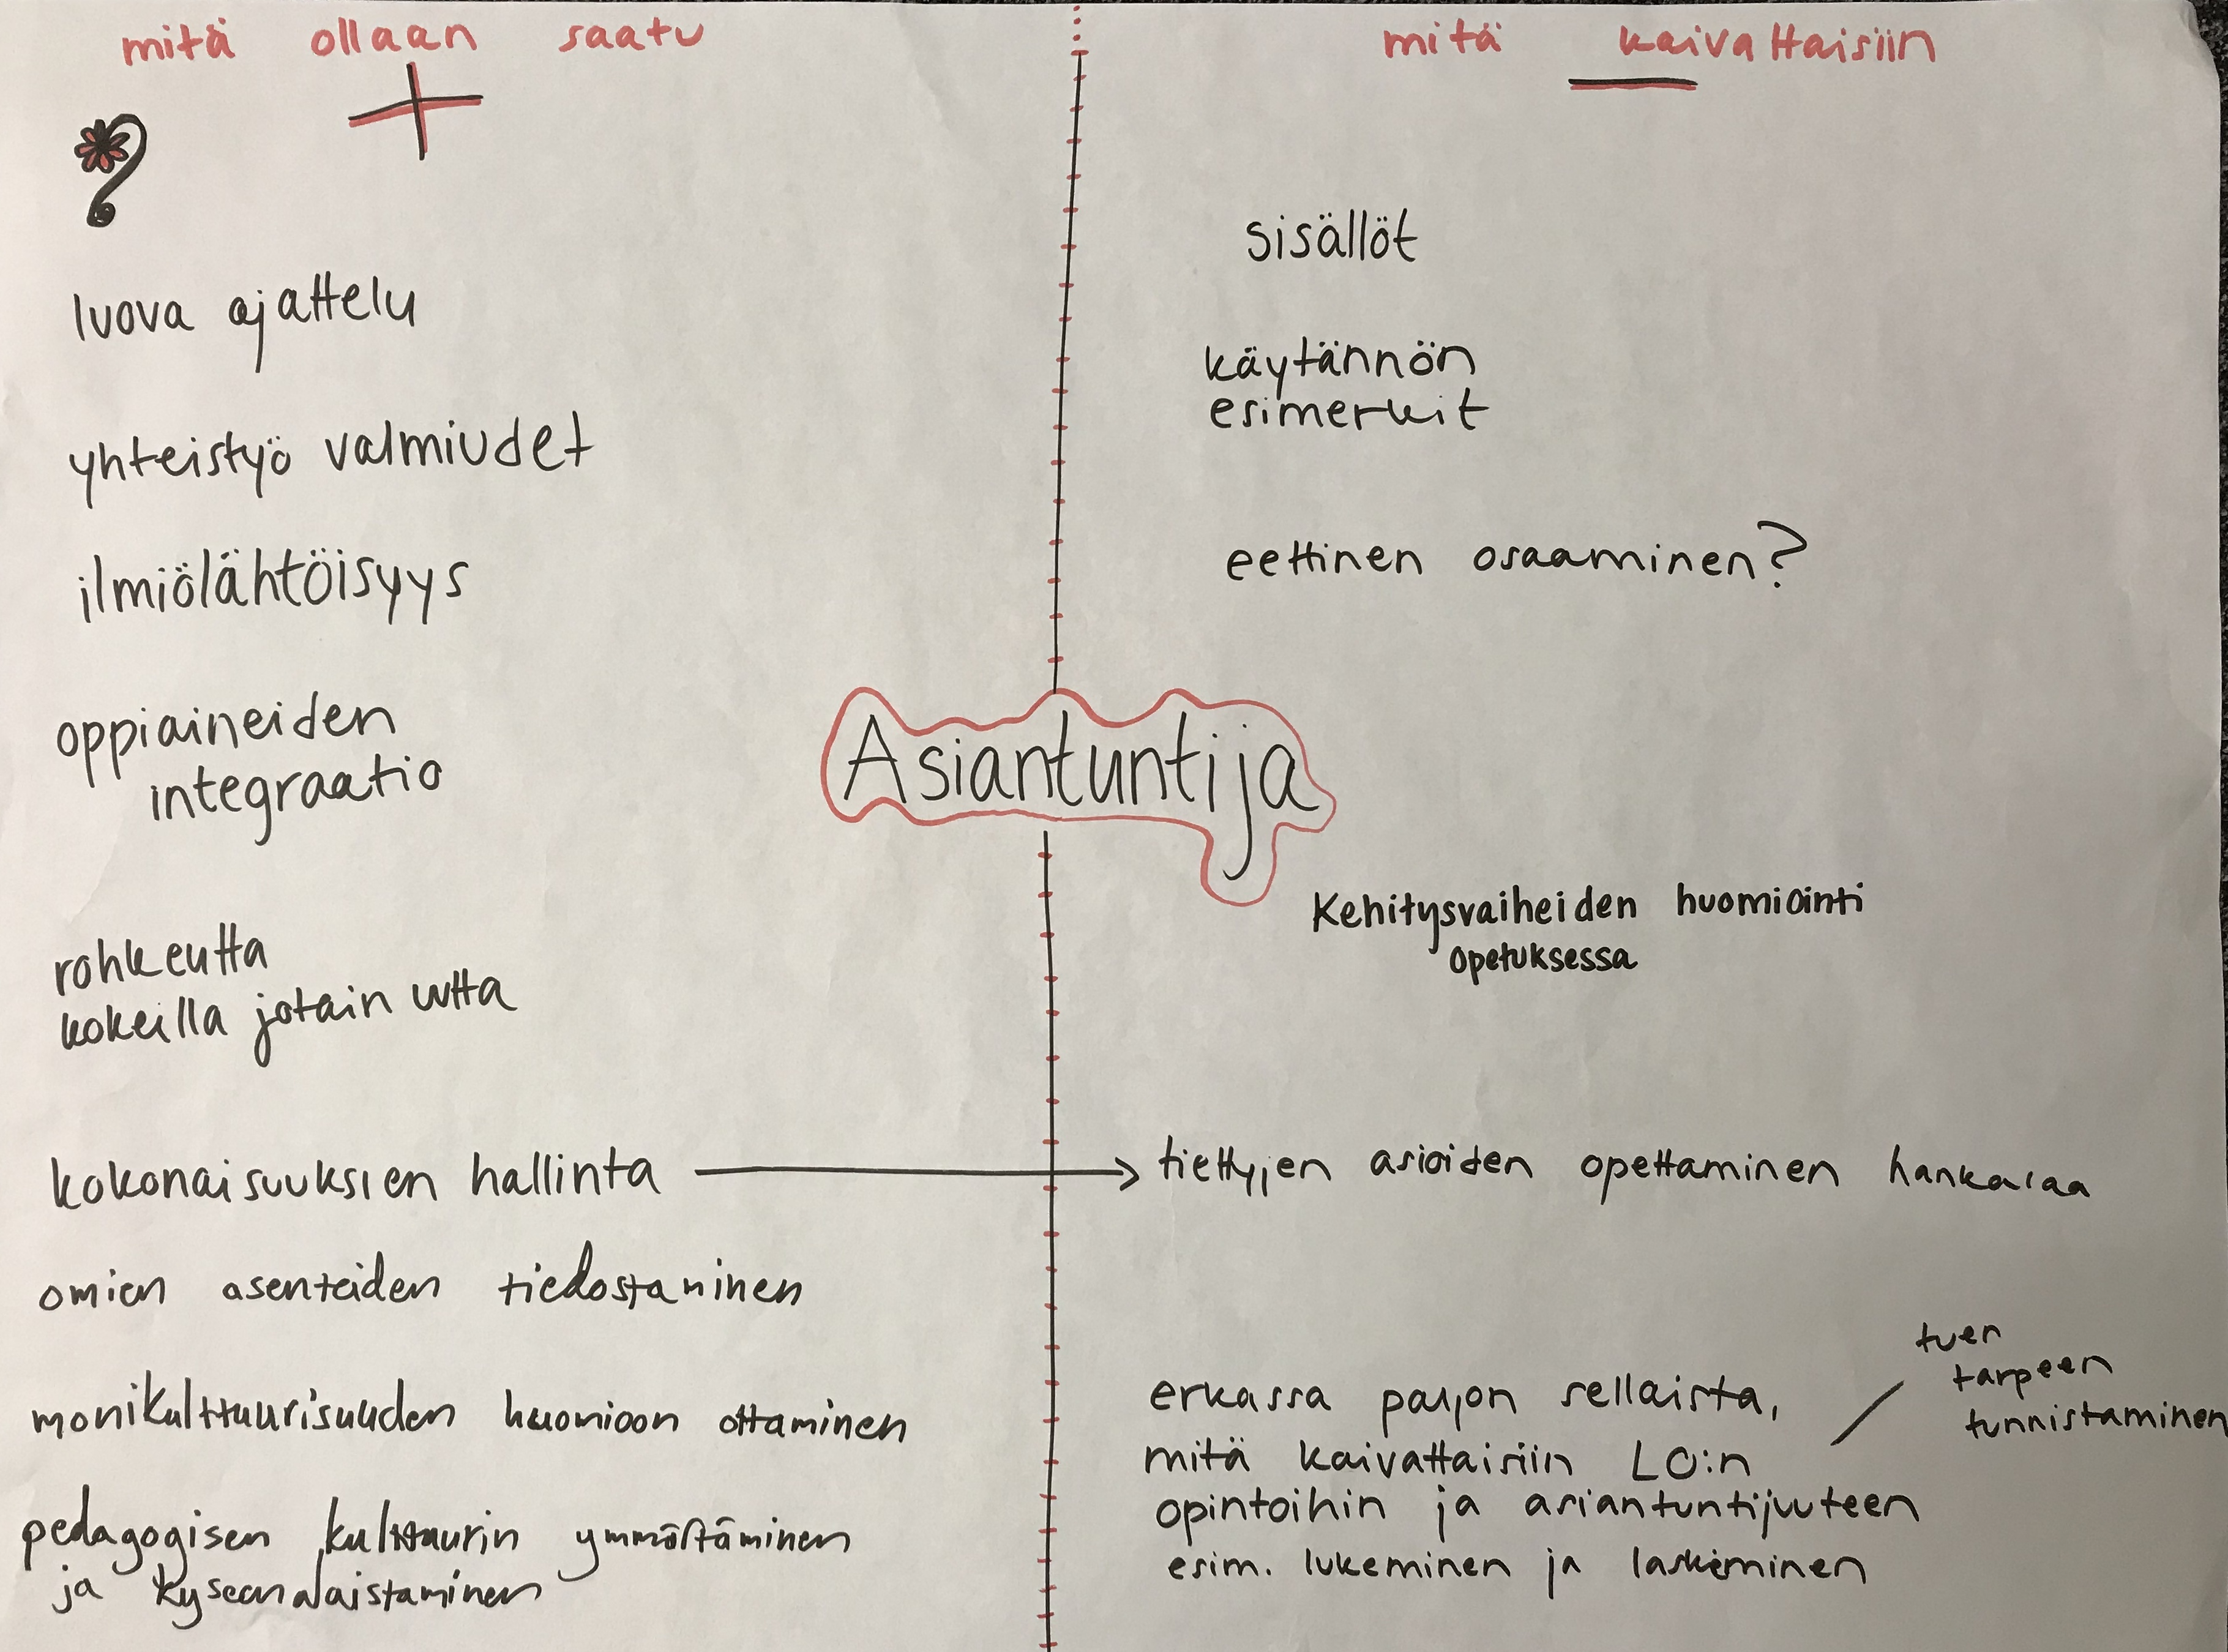 mitä ollaan saatu
luova ajattelu
yhteistyö valmiudet
ilmiölähtöisyys
oppiaineiden
integraatio
rohkeutta
kokeilla jotain uutta
kokonaisuuksien hallinta
omien asenteiden tiedostaminen
monikulttuurisuuden huomioon ottaminen
pedagogisen kulttuurin ymmärtäminen
ja kyseenalaistaminen
Asiantuntija
mitä kaivattaisiin
sisällöt
käytännön
esimerkit
eettinen osaaminen?
Kehitysvaiheiden huomiointi
opetuksessa
tiettyjen asioiden opettaminen hankalaa
erkassa paljon sellaista,
mitä kaivattaisiin LO:n
opintoihin ja asiantuntijuuteen
esim. lukeminen ja laskeminen
tuen
tarpeen
tunnistaminen